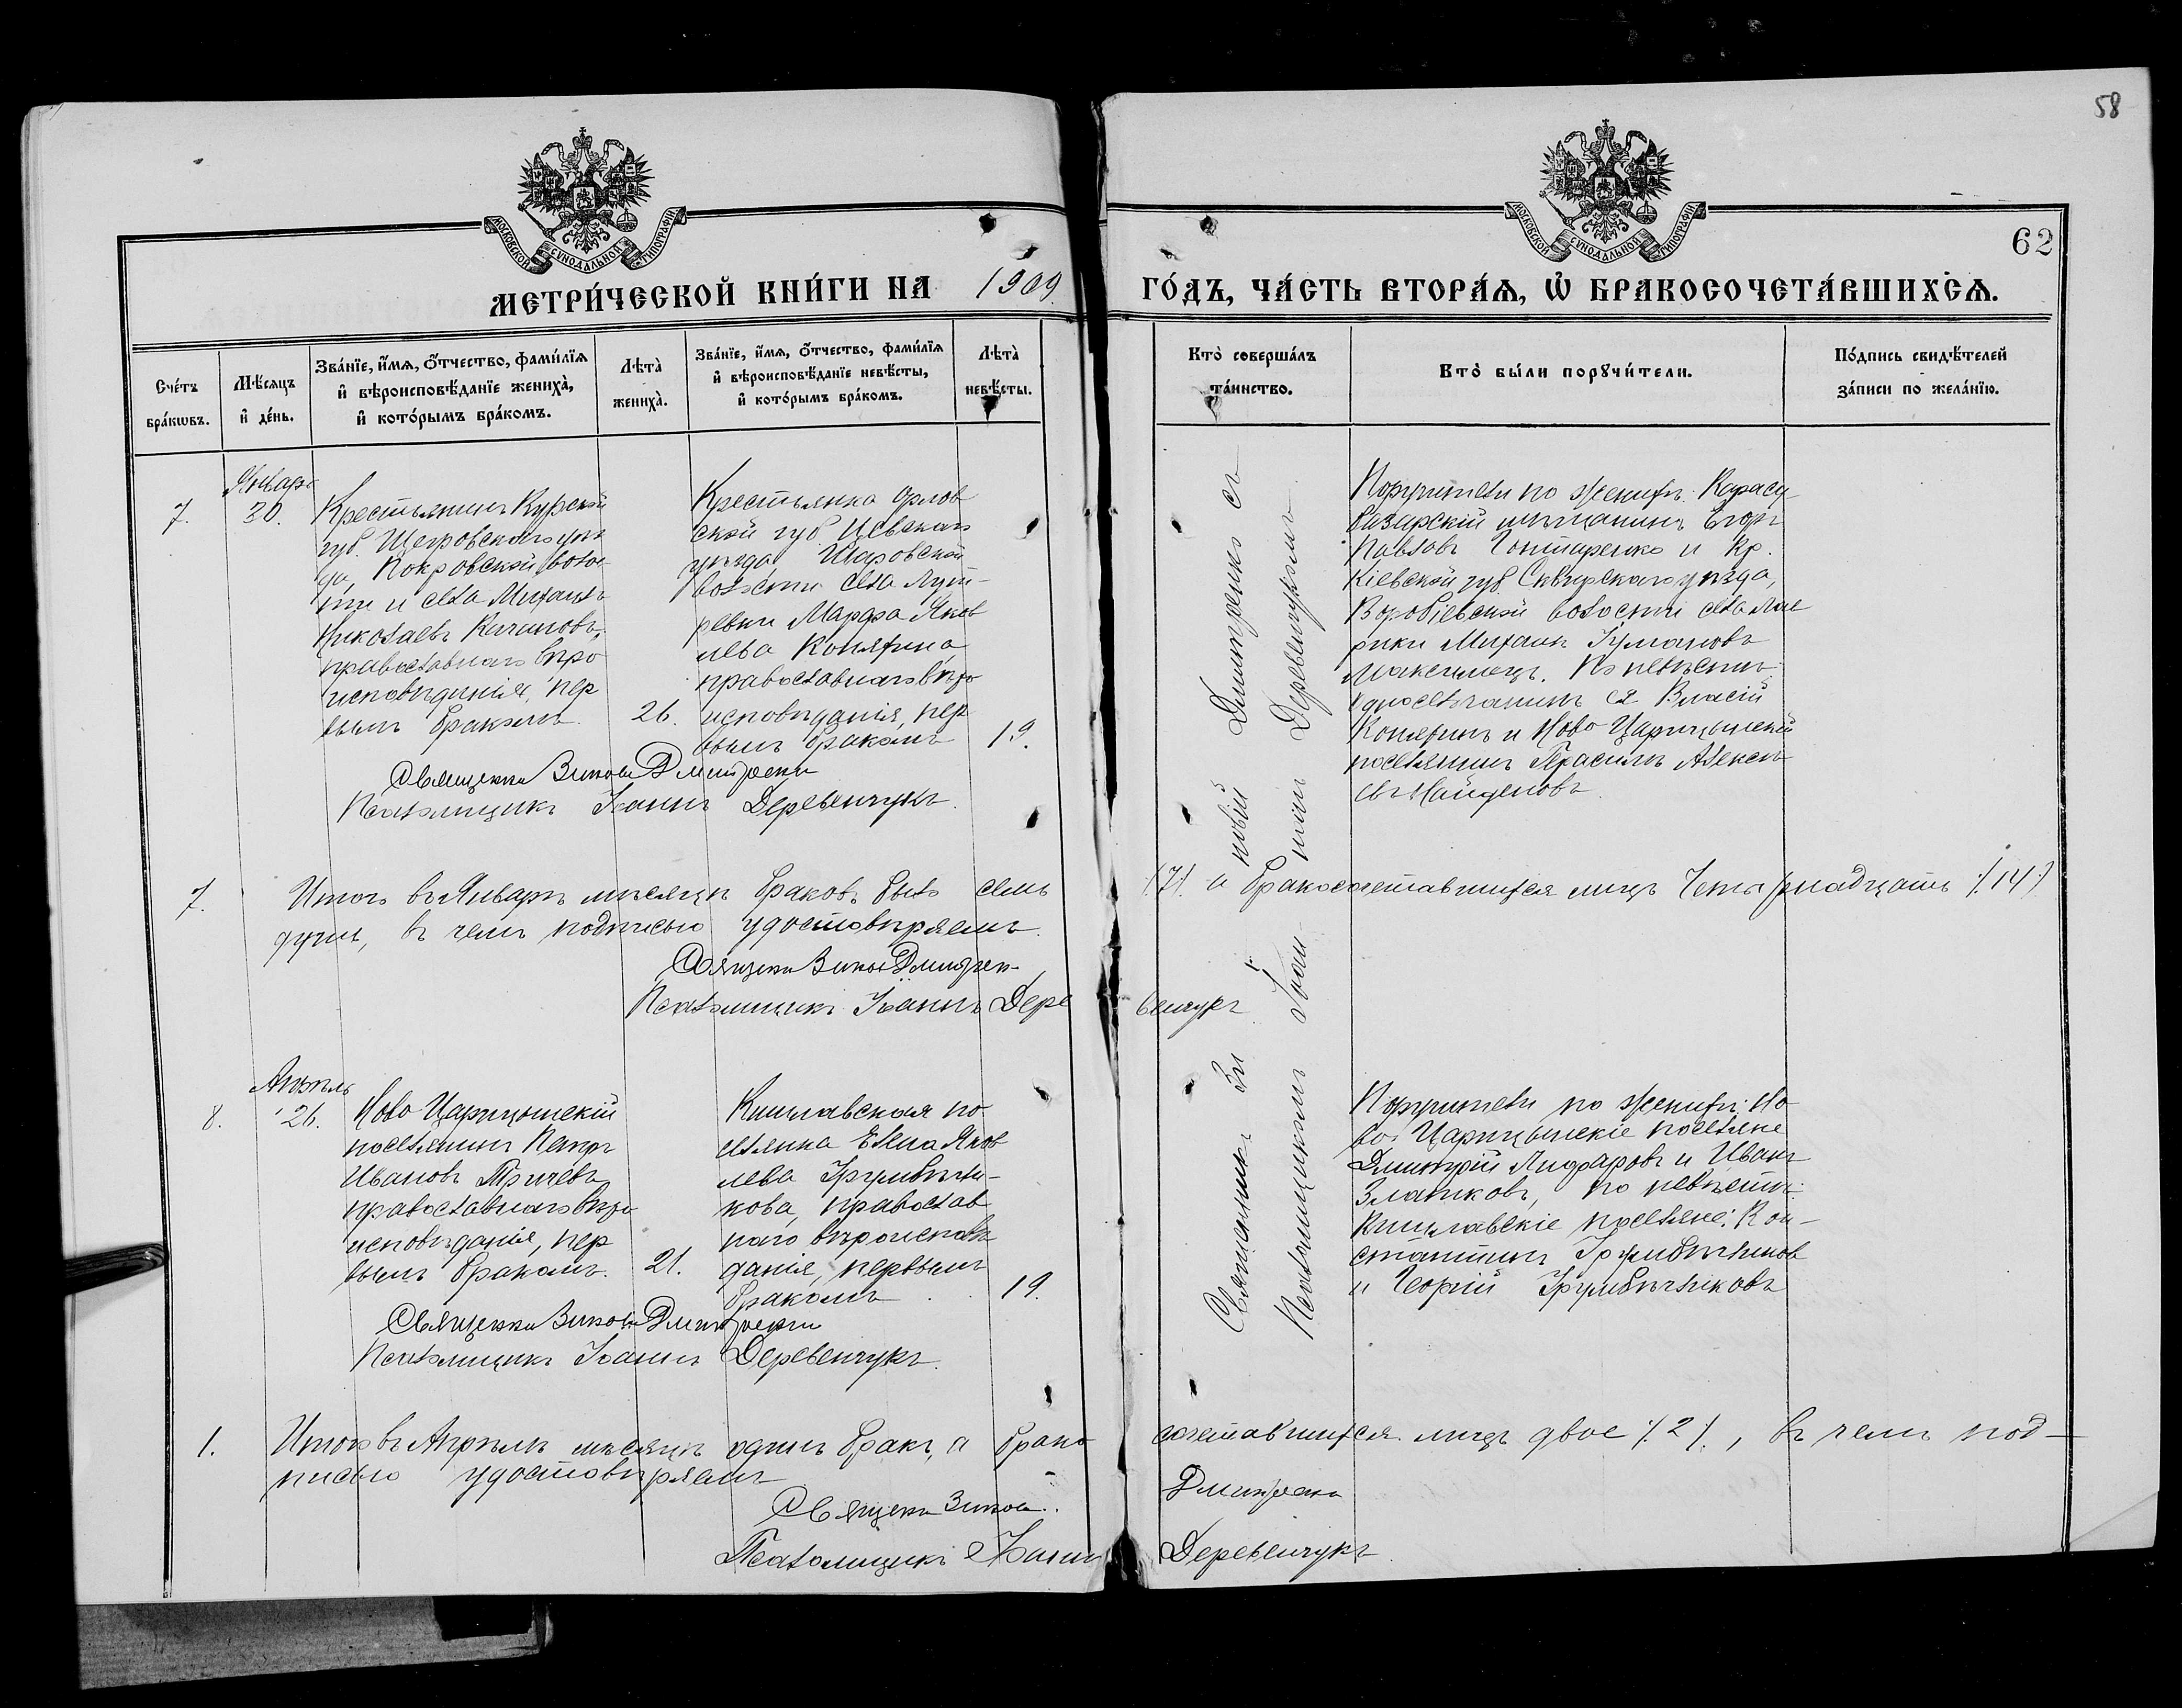 58
МОСКОВСКОЙ СѴНОДАЛЬНОЙ ТИПОГРАФІИ
МОСКОВСКОЙ СѴНОДАЛЬНОЙ ТИПОГРАФІИ
62
МЕТРИ́ЧЕСКОЙ КНИ́ГИ НА 1909
ГО́ДЪ, ЧА́СТЬ ВТОРА́Ѧ, Ѿ БРАКОСОЧЕТА́ВШИХСѦ.
Сче́тъ
бра́кѡвъ.
Мѣ́сяцъ
и҆ де́нь.
Зва́нїе, и҆́мѧ, ѻ҆́тчество, фами́лїѧ
и҆ вѣроисповѣ́данїе жениха̀,
и҆ кото́рымъ бра́комъ.
Лѣ́та̀
жениха̀.
Зва́нїе, и҆́мѧ, ѻ҆́тчество, фами́лїѧ
и҆ вѣроисповѣ́данїе невѣ́сты,
и҆ кото́рымъ бра́комъ.
Лѣ́та̀
невѣ́сты.
Кто̀ соверша́лъ
та́инство.
Кто̀ бы́ли порꙋчи́тели.
По́дпись свидѣ́телей
за́писи по жела́нїю.
7.
Январь
30.
Крестьянинъ Курской
губ. Щегровскаго уѣз
да, Покровской волос
ти и села Михаилъ
Николаевъ Качановъ,
православнаго вѣро
исповѣданія, пер
вымъ бракомъ.
26.
Крестьянка Орлов
ской губ. Цевскаго
уѣзда Шаровской
волости села Лут-
ревки Марфа Яков
лева Коняхина,
православнаго вѣро
исповѣданія, пер
вымъ бракомъ
19.
Священникъ Зиновій Дмитренко
Псаломщикъ Іоаннъ Деревенчукъ.
Священникъ Зиновій Димитренко съ
Псаломщикомъ Іоанномъ Деревенчукомъ
Поручители по женихѣ: Карасу
базарскій мѣщанинъ Егоръ
Павловъ Гонтаренко и Кр.
Кіевской губ. Сквирскаго уѣзда,
Воробіевской волости села
Михаилъ
По невѣстѣ:
односельчанинъ ея Власій
Коняхинъ и Ново Царицынскій
поселянинъ Герасимъ Алексѣ
евъ Найденовъ.
7. Итого въ Январѣ мѣсяцѣ браковъ было семь /7/. а бракосочетавшихся лицъ Четырнадцать /14/
душъ, въ чемъ подписью удостовѣряемъ.
Священникъ Зиновій Дмитренко
Псаломщикъ Іоаннъ Деревенчукъ
8.
Апрѣль
26.
Ново Царицынскій
поселянинъ Петръ
Ивановъ Тричевъ
православнаго вѣро
исповѣданія, пер
вымъ бракомъ.
21.
Кишлавская по
селянка Елена Яков
лева Грумбычли-
кова, православ
наго вѣроисповѣ
данія, первымъ
бракомъ
19.
Священникъ Зиновій Дмитренко
Псаломщикъ Іоаннъ Деревенчукъ.
Поручители по женихѣ: Но
во Царицынскіе поселяне
Дмитрій Лифаровъ и Иванъ
Златковъ, по невѣстѣ:
Кишлавскіе поселяне: Кон-
стантинъ Грумбычликовъ
и Георгій Грумбычликовъ
1. Итого въ Апрѣлѣ мѣсяцѣ одинъ бракъ, а бракосочетавшихся лицъ двое /2/., въ чемъ под-
писью удостовѣряемъ
Священникъ Зиновій Дмитренко
Псаломщикъ Іоаннъ Деревенчукъ.